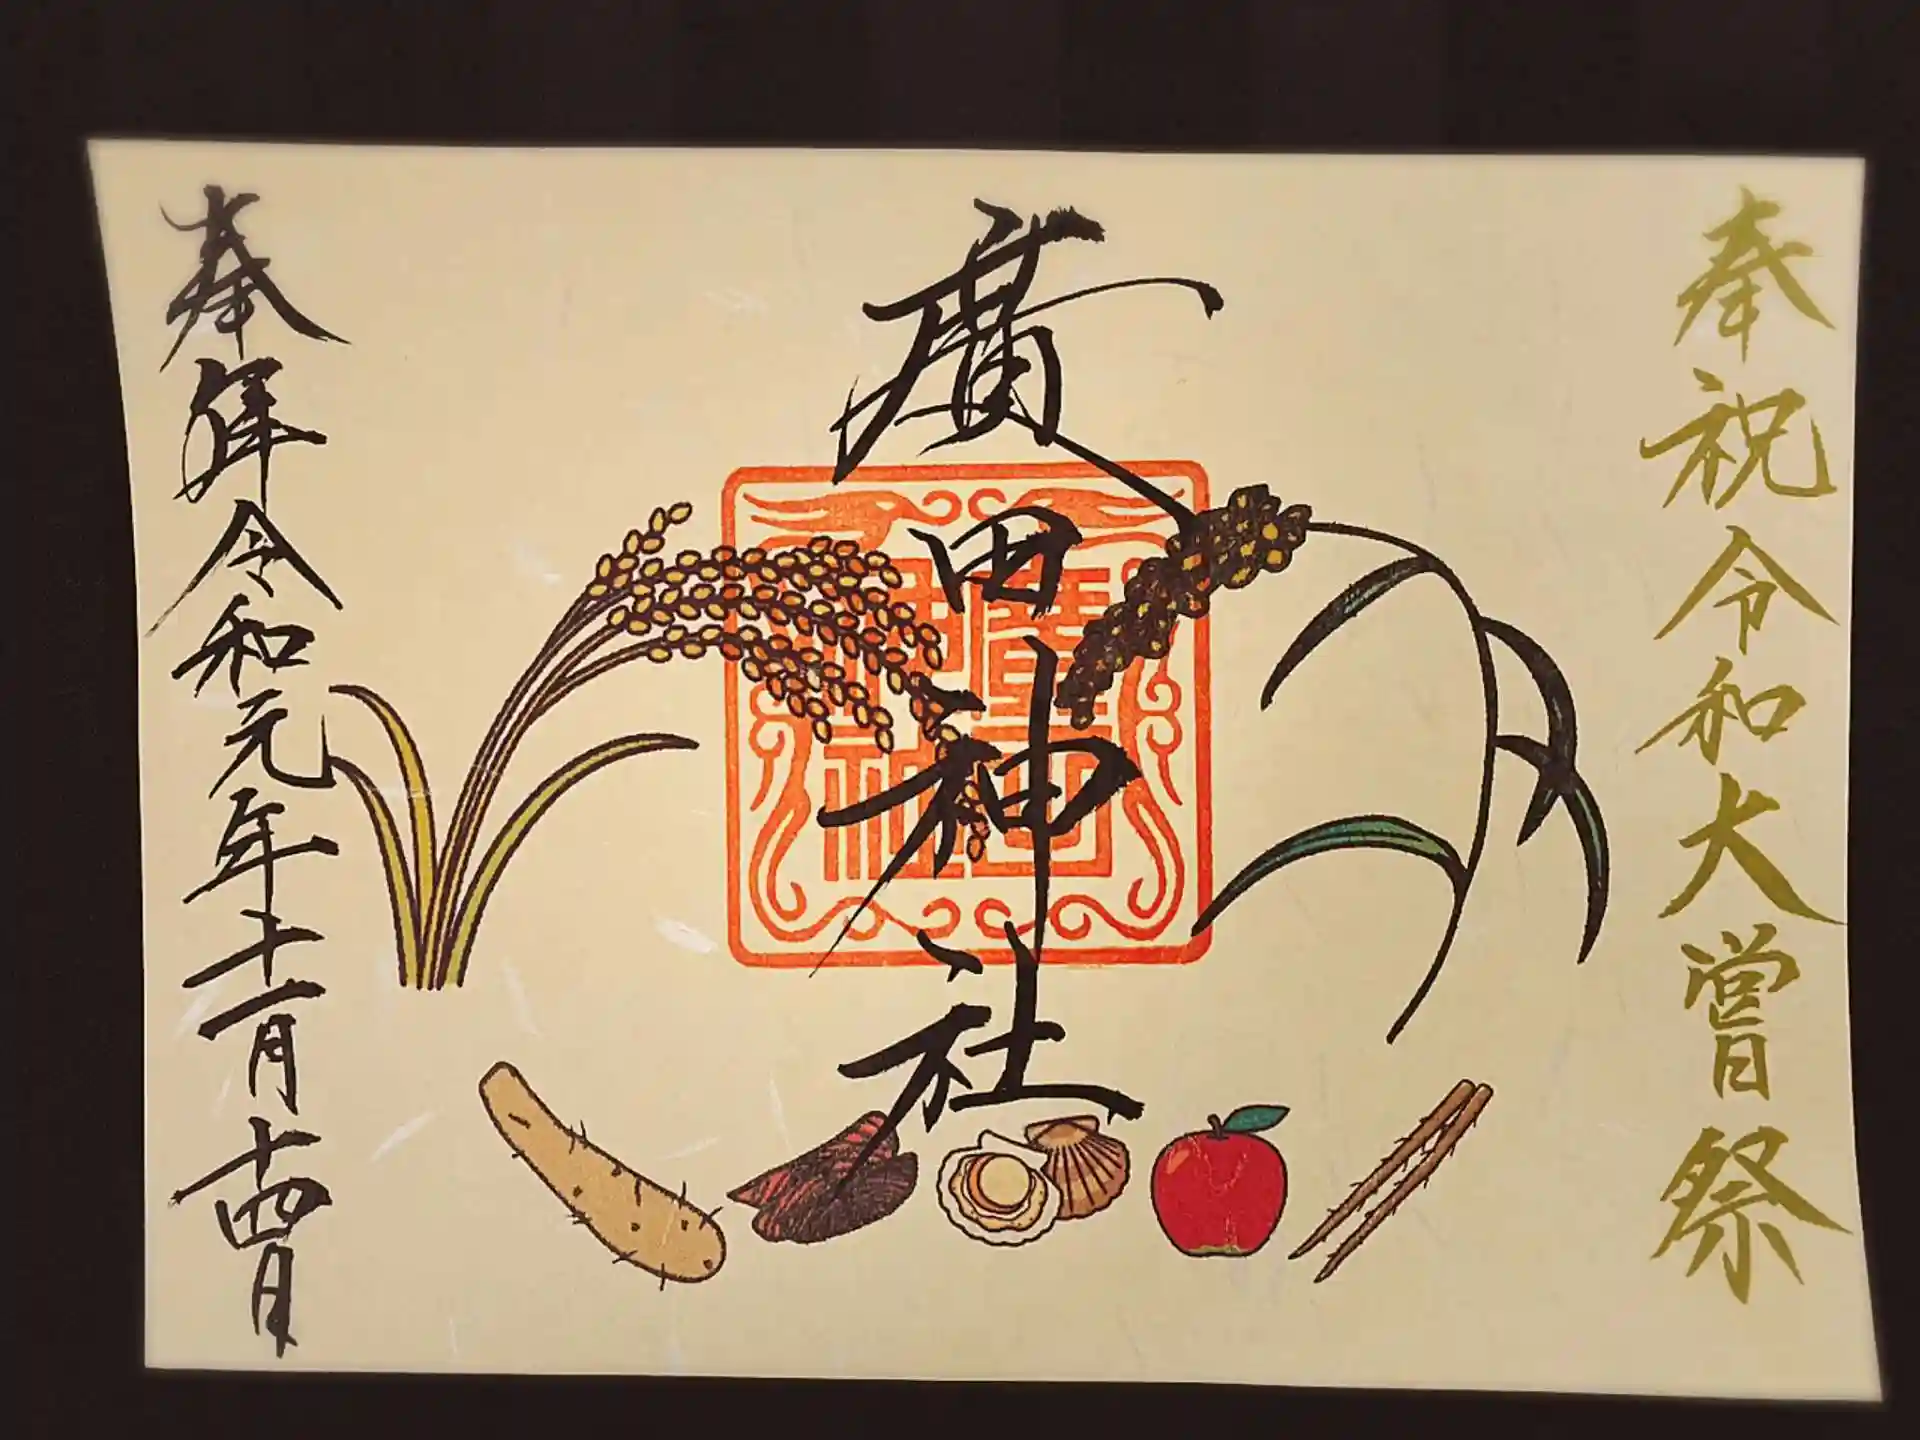 奉祝令和大嘗祭
廣田神社
廣田
神社
奉拝令和元年十一月十四日